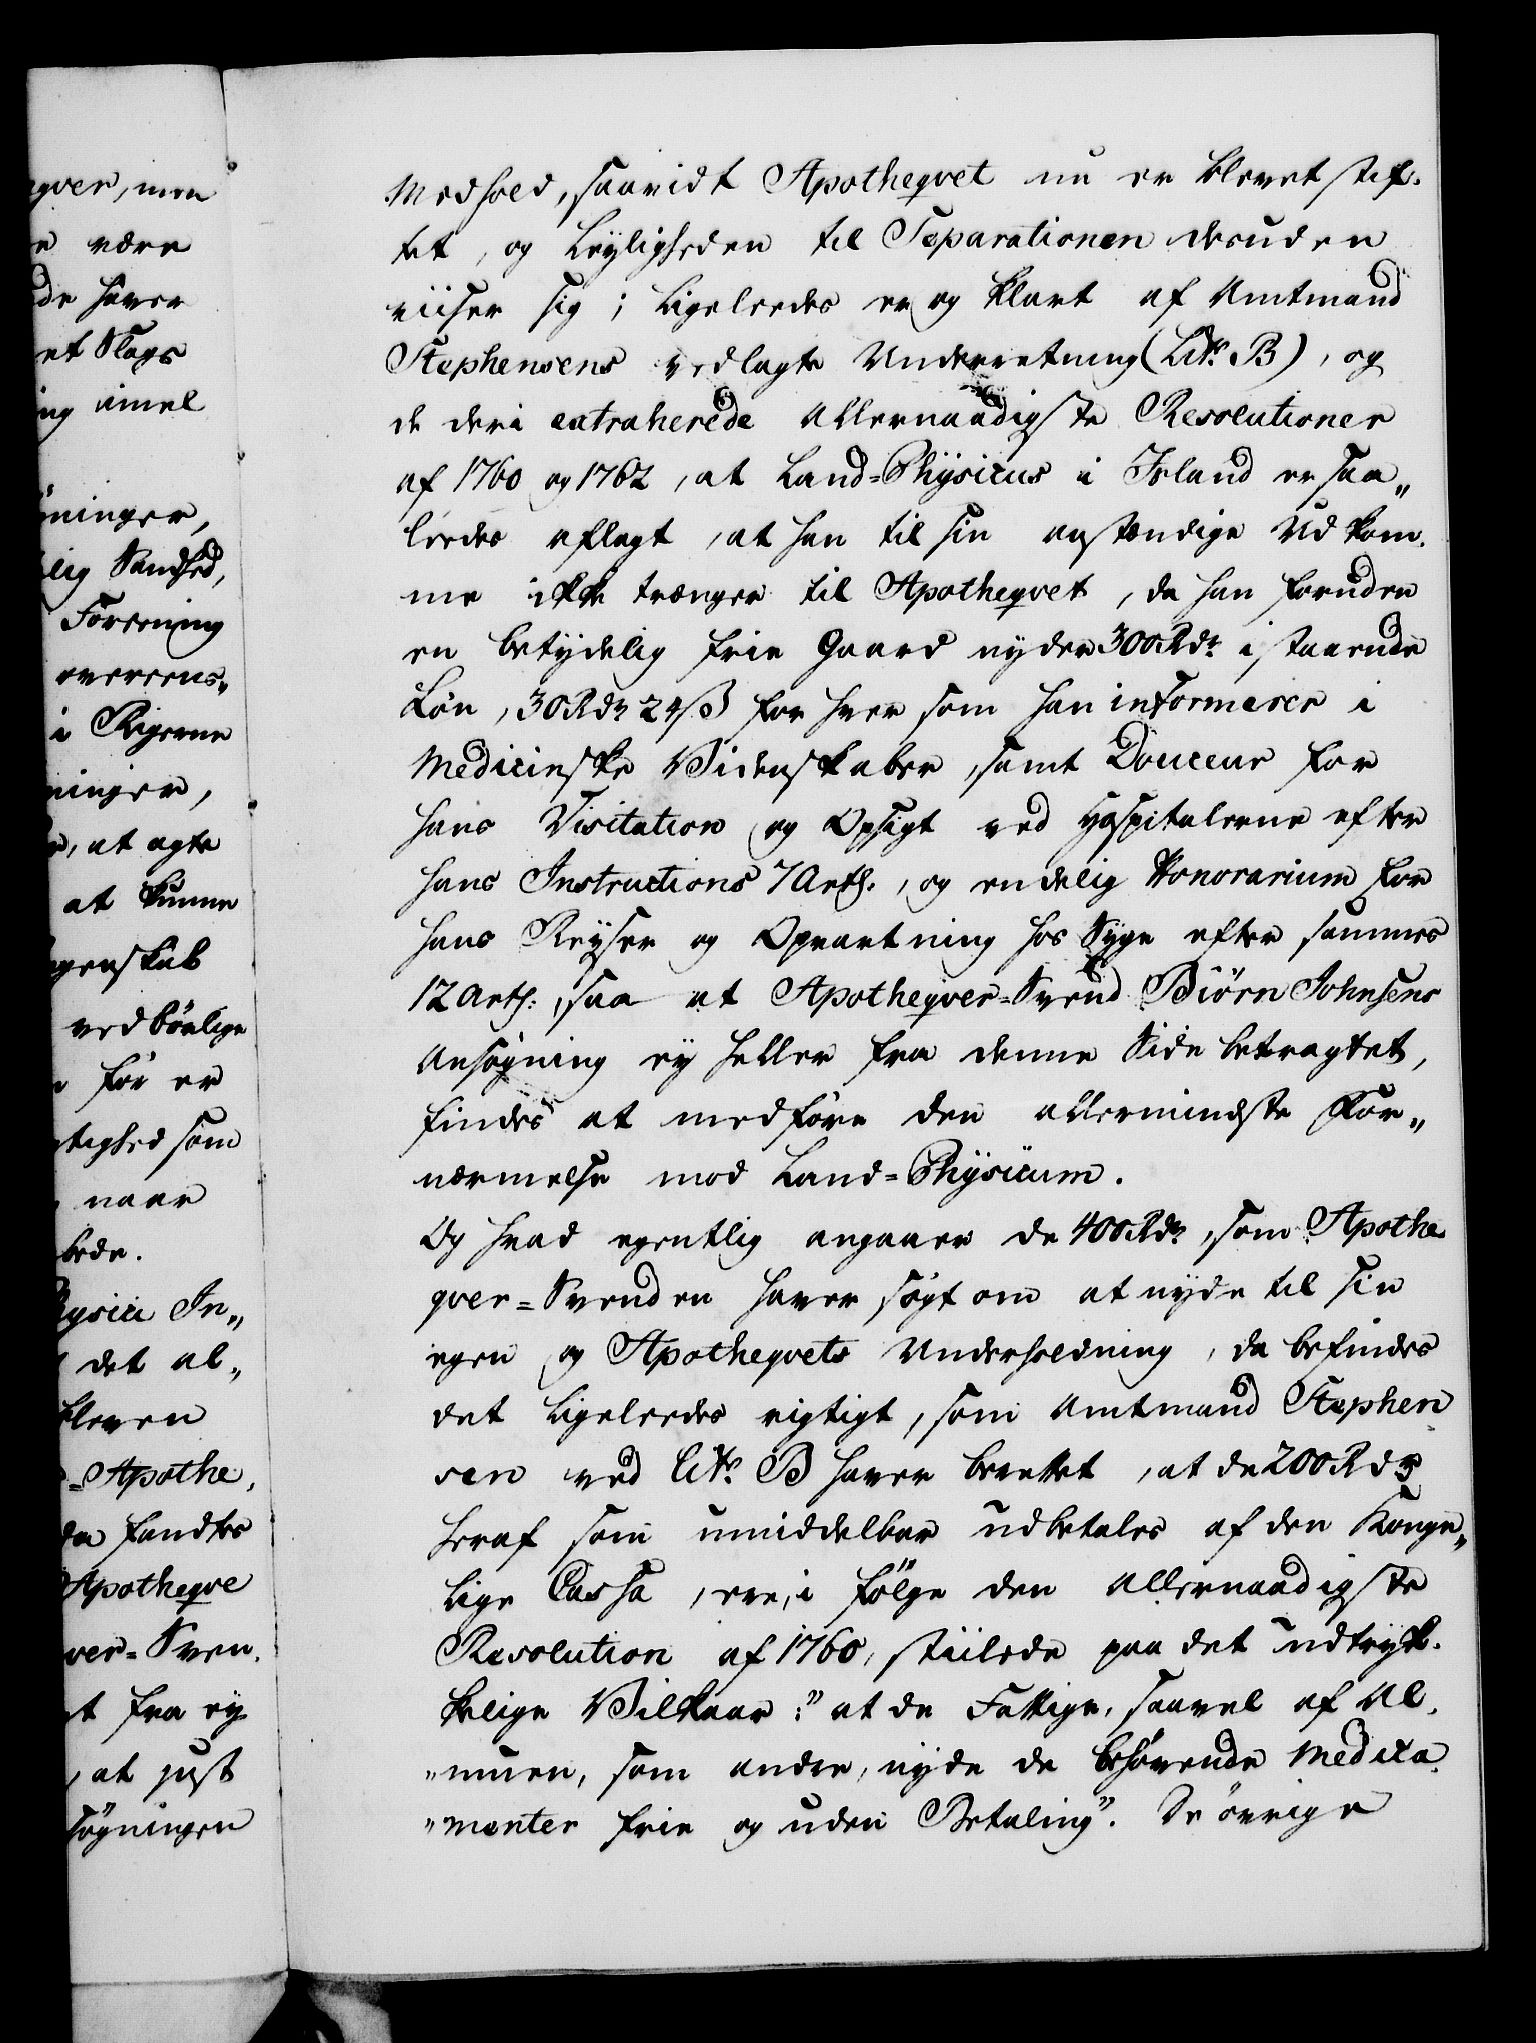 gver, men
e være
de haver
et Slags
ng imel
ninger,
lig Sandhed,
Foreening
overeens„
i Rigerne
ninger,
r, at agte
at kunne
genskab
vedbørlige
før er
tighed som
naar
bede.
hysici In„
det al„
bleven
-Apothe,
da fandtes
Apotheqve
ver-Sven.
t fra ey
, at just
søgningen
Medhold, saavidt Apotheqvet nu er blevet stif.
tet, og Leyligheden til Separationen desuden
viiser sig; Ligeledes er og klart af Amtmand
Stephensens vedlagte Underretning (Litr. B), og
de deri extraherede Allernaadigste Resolutioner
af 1760 og 1762, at Land-Physicus i Island er saa„
ledes aflagt, at han til sin anstændige Udkom.
me ikke trænger til Apotheqvet, da han foruden
en betydelig frie Gaard nyder 300 Rdr. i staaende
Løn, 30 Rdr 24 ß for hver som han informerer i
Medicinske Videnskaber, samt Douceur for
hans Visitation og Opsigt ved Hospitalerne efter
hans Instructions 7 Art:, og endelig Honorarium for
hans Reyser og Opvartning hos Syge efter sammes
12 Art:, saa at Apotheqver-Svend Biørn Johnsens
Ansøgning ey heller fra denne Side betragtet,
findes at medføre den allermindste For„
nærmelse mod Land-Physicum.
Og hvad egentlig angaaer de 400 Rdr, som Apothe
qver-Svenden haver søgt om at nyde til sin
egen og Apotheqvets Underholdning, da befindes
det ligeledes rigtigt, som Amtmand Stephen
sen ved Litr. B haver berettet, at de 200 Rdr
heraf som umiddelbar udbetales af den Konge„
lige Cassa, ere, i følge den Allernaadigste
Resolution af 1760, stiilede paa det udtryk.
kelige Vilkaar: "at de Fattige, saavel af Al,
"muen, som andre, nyde de behøvende Medica
"menter frie og uden Betaling". De øvrige